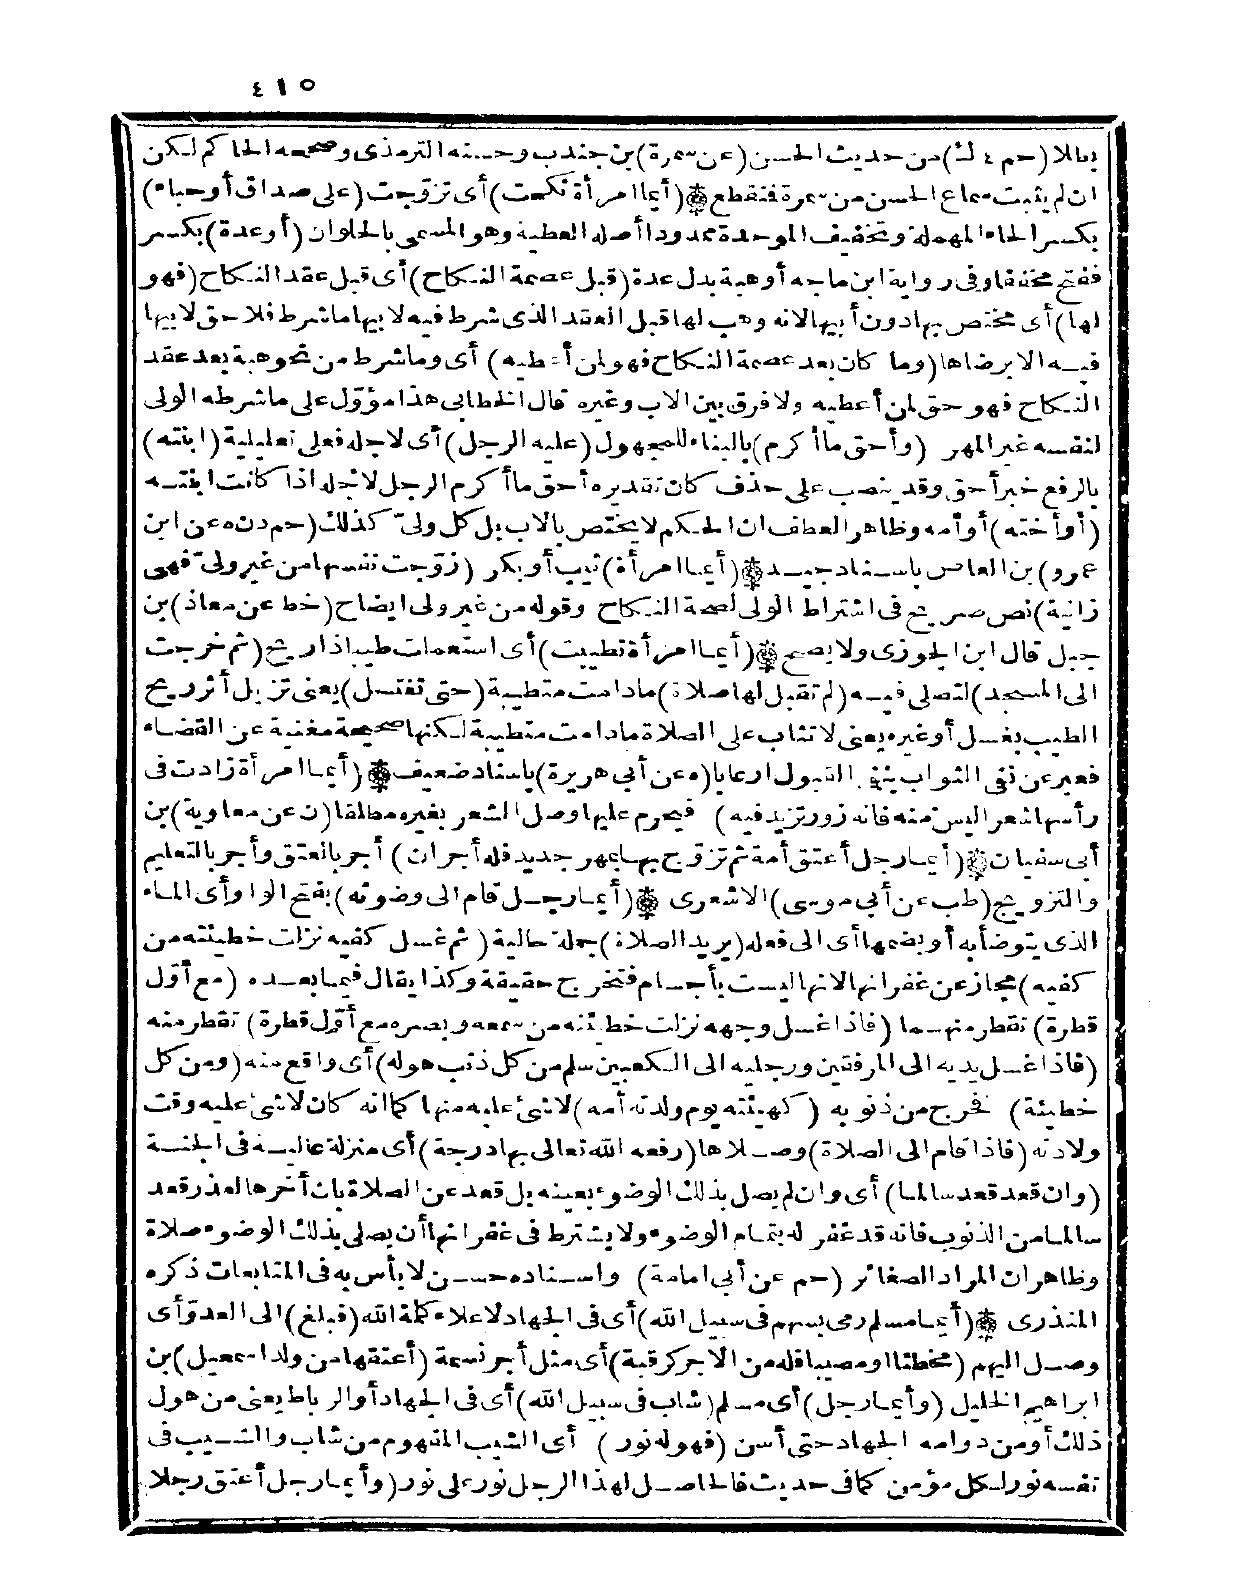 ٤١٥
باطلا (حم ٤ ك) من حديث الحسن (عن سمرة) بن جندب وحسنه الترمذى وصححه الحاكم لكن
ان لم يثبت سماع الحسن من سمرة فمنقطع ۞ (أيما امرأة نكحت) أى تزوّجت (على صداق أوحباء)
بكسر الحاء المهملة وتخفيف الموحدة ممدودا أصله العطية وهو المسمى بالحلوان (أوعدة) بكسر
ففتح مخففا وفى رواية ابن ماجه أوهبة بدل عدة (قبل عصمة النكاح) أى قبل عقد النكاح (فهو
لها) أى مختص بها دون أبيها لانه وهب لها قبل العقد الذى شرط فيه لابيها ما شرط فلا حق لابيها
فيه الا برضاها (وما كان بعد عصمة النكاح فهو لمن أعطيه) أى وما شرط من نحو هبة بعد عقد
النكاح فهو حق لمن أعطيه ولا فرق بين الاب وغيره قال الخطابى هذا مؤوّل على ما شرطه الولى
لنفسه غير المهر (وأحق ما أكرم) بالبناء للمجهول (عليه الرجل) أى لاجله فعلى تعليلية (ابنته)
بالرفع خبر أحق وقد ينصب على حذف كان تقديره أحق ما أكرم الرجل لاجله اذا كانت ابنتـه
(أوأخته) أوأمه وظاهر العطف ان الحكم لا يختص بالاب بل كل ولىّ كذلك (حم د ن ه عن ابن
عمرو) بن العاص باسناد جيـد ۞ (أيما امرأة) ثيب أوبكر (زوّجت نفسها من غير ولىّ فهى
زانية) نص صريح فى اشتراط الولى لصحة النكاح وقوله من غير ولى ايضاح (خط عن معاذ) بن
جبل قال ابن الجوزى ولا يصح ۞ (أيما امرأة تطيبت) أى استعملت طيبا ذا ريح (ثم خرجت
الى المسجد) لتصلى فيـه (لم تقبل لها صلاة) ما دامت متطيبة (حتى تغتسل) يعنى تزيل أثر ريح
الطيب بغسل أوغيره يعنى لا تثاب على الصلاة ما دامت متطيبة لكنها صحيحة مغنية عن القضاء
فعبر عن نفى الثواب بنفى القبول ارعابا (ه عن أبى هريرة) باسناد ضعيف ۞ (أيما امرأة زادت فى
رأسها شعرا ليس منه فانه زور تزيد فيه) فيحرم عليها وصل الشعر بغيره مطلقا (ن عن معاوية) بن
أبى سفيان ۞ (أيما رجل أعتق أمة ثم تزوّج بها بمهر جديد فله أجران) أجر بالعتق وأجر بالتعليم
والتزويج (طب عن أبى موسى) الاشعرى ۞ (أيما رجـل قام الى وضوئه) بفتح الواو أى الماء
الذى يتوضأ به أوبضمها أى الى فعله (يريد الصلاة) جملة حالية (ثم غسل كفيه نزلت خطيئته من
كفيه) مجاز عن غفرانها لانها ليست بأجسام فتخرج حقيقة وكذا يقال فيما بعـده (مع أوّل
قطرة) تقطر منهـما (فاذا غسل وجهه نزلت خطيئته من سمعه وبصره مع أوّل قطرة) تقطر منه
(فاذا غسـل يديه الى المرفقين ورجليه الى الكعبين سلم من كل ذنب هو له) أى واقع منه (ومن كل
خطيئة) فخرج من ذنوبه (كهيئته يوم ولدته أمه) لا شئ عليه منها كما انه كان لا شئ عليه وقت
ولادته (فاذا قام الى الصلاة) وصـلاها (رفعه الله تعالى بها درجة) أى منزلة عاليـة فى الجنـة
(وان قعد قعد سالما) أى وان لم يصل بذلك الوضوء بعينه بل قعد عن الصلاة بان أخرها لعذر قعد
سالما من الذنوب فانه قد غفر له بتمام الوضوء ولا يشترط فى غفرانها أن يصلى بذلك الوضوء صلاة
وظاهر ان المراد الصغائر (حم عن أبى امامة) واسـناده حسـن لا بأس به فى المتابعات ذكره
المنذرى ۞ (أيما مسلم رمى بسهم فى سبيل الله) أى فى الجهاد لاعلاء كلمة الله (فبلغ) الى العدوّ أى
وصـل اليهم (مخطئا أو مصيبا فله من الاجر كرقبة) أى مثل أجر نسمة (أعتقها من ولد اسمعيل) بن
ابراهيم الخليل (وأيما رجل) أى مسلم (شاب فى سبيل الله) أى فى الجهاد أوالرباط يعنى من هول
ذلك أو من دوامه الجهاد حتى أسن (فهو له نور) أى الشيب المفهوم من شاب والشـيب فى
نفسه نور لكل مؤمن كما فى حديث فالحاصـل لهذا الرجل نور على نور (وأيما رجل أعتق رجلا